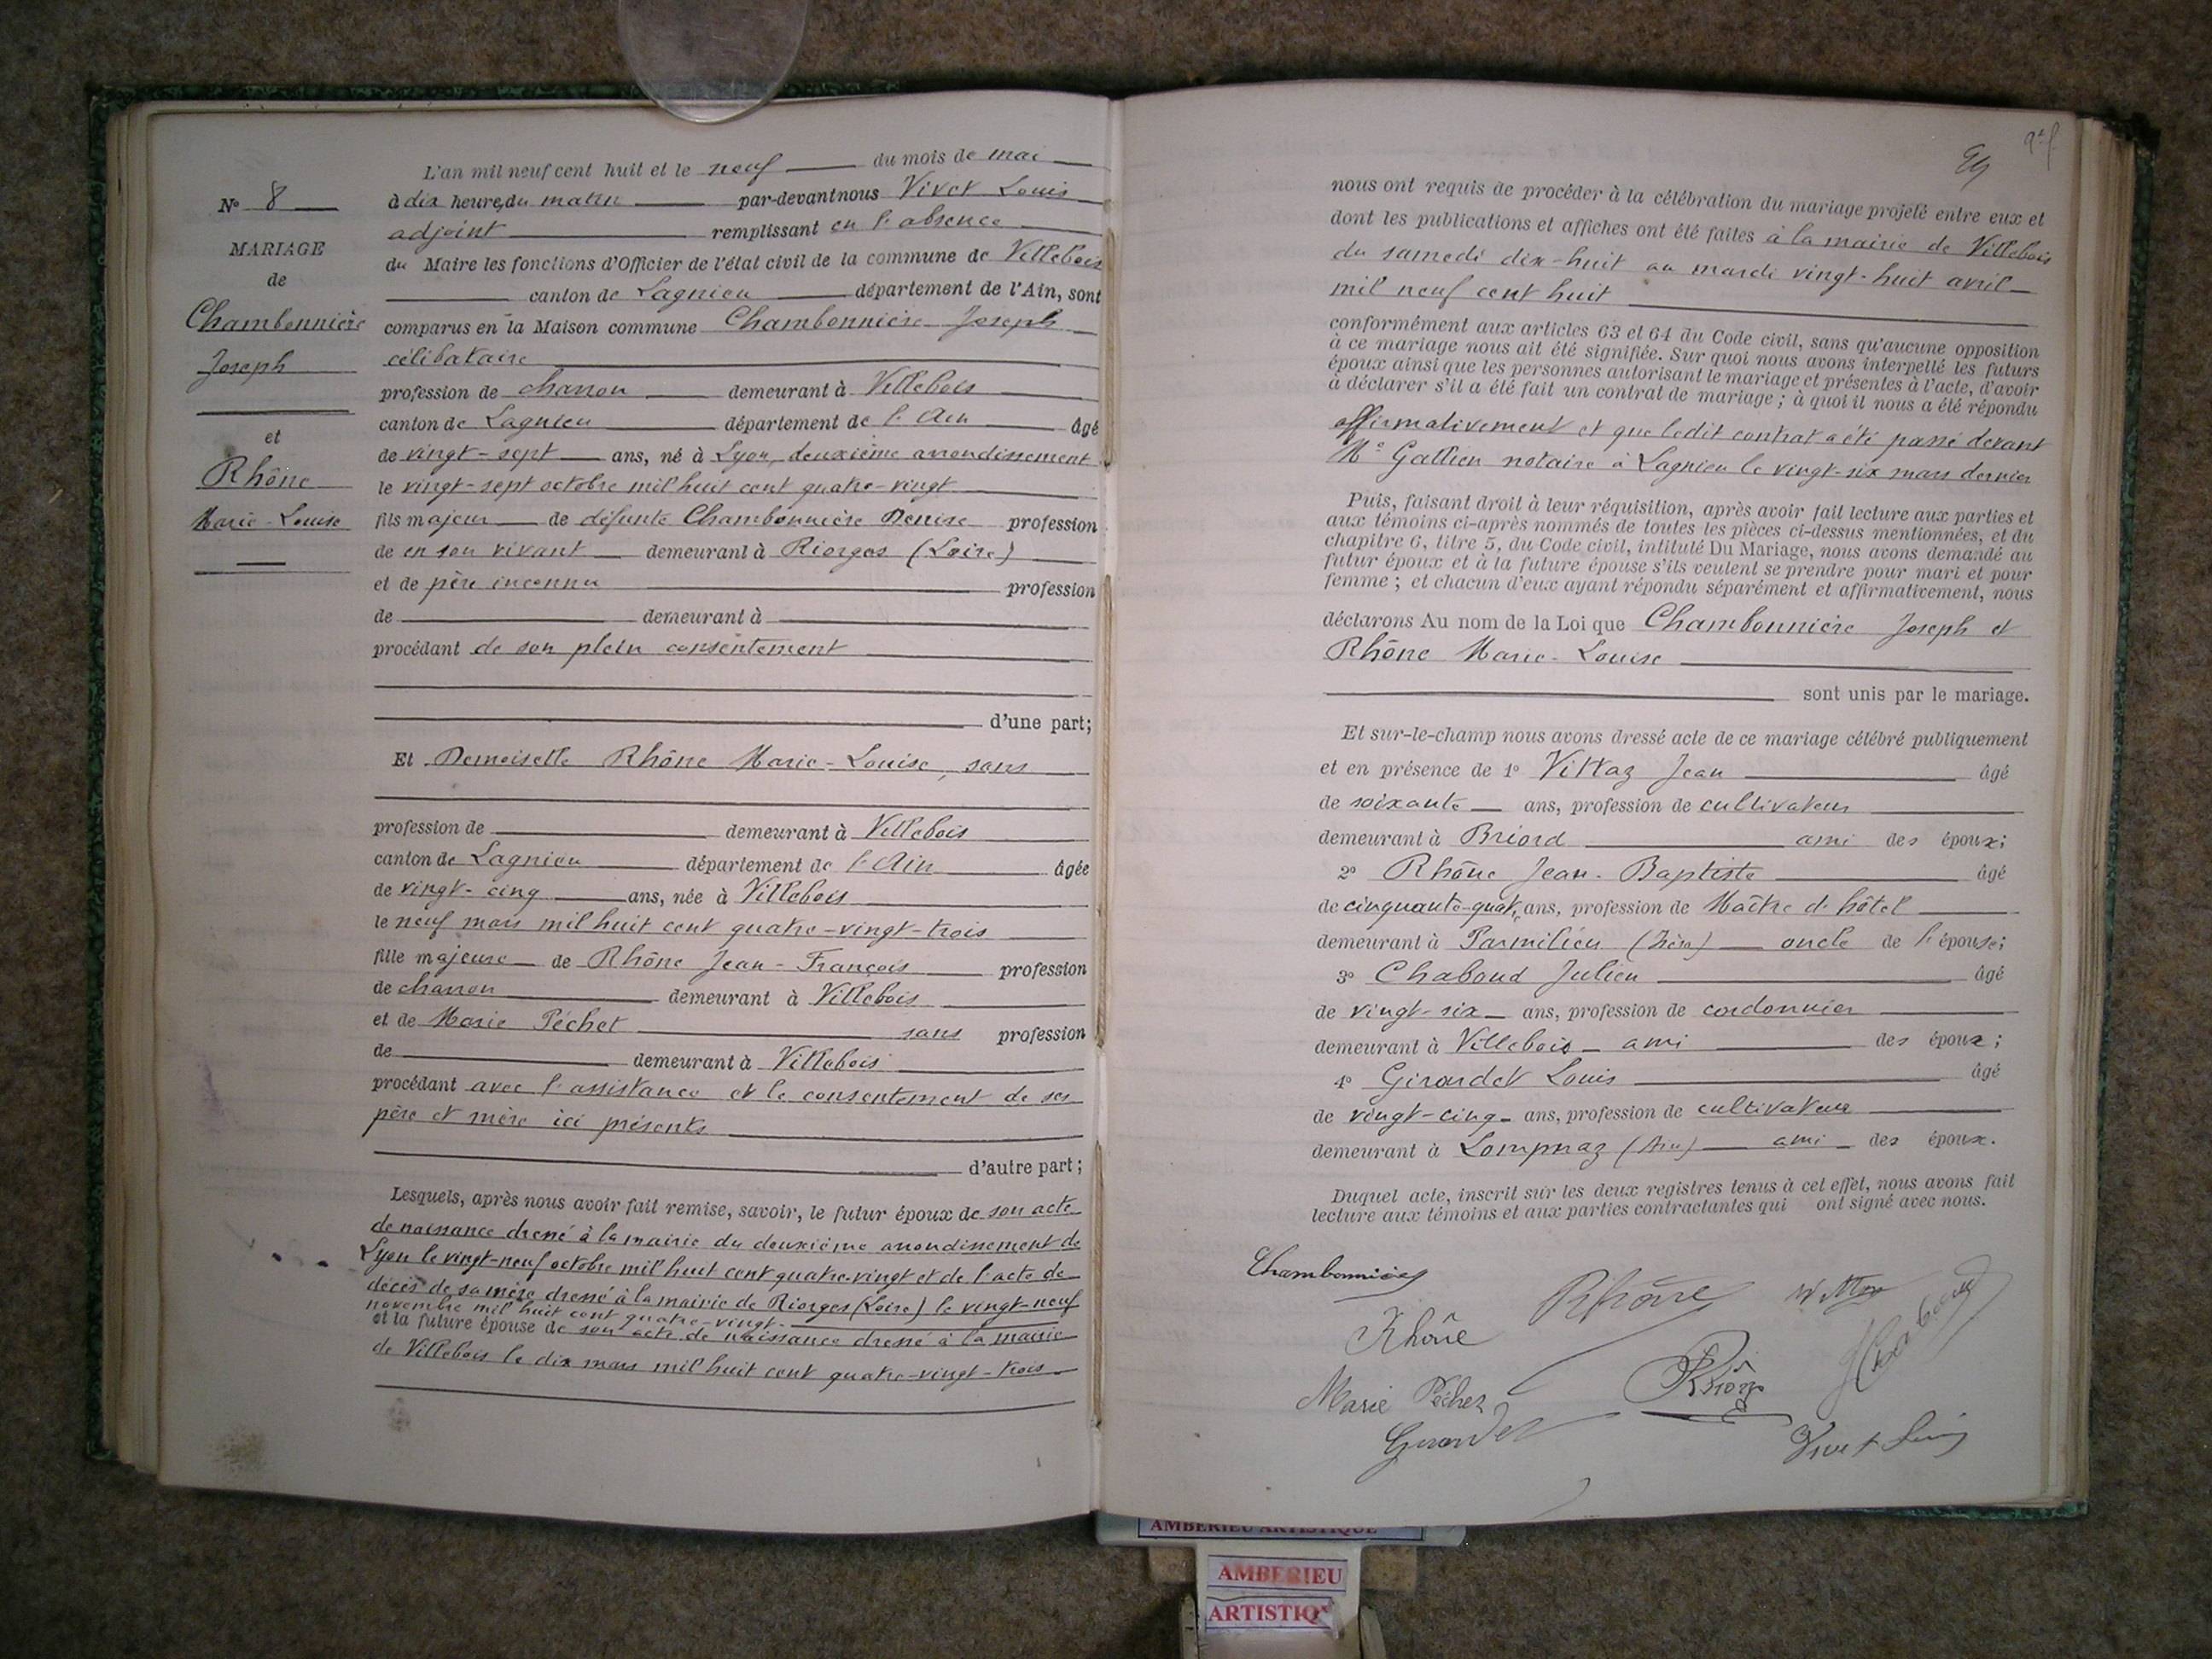 N° 8
MARIAGE
de
Chambonnière
Joseph
et
Rhône
Marie-Louise
L'an mil neuf cent huit et le neuf du mois de mai
à dix heures du matin par-devant nous Vivet Louis
adjoint remplissant en l'absence
du Maire les fonctions d'Officier de l'état civil de la commune de Villebois
canton de Lagnieu département de l'Ain, sont
comparus en la Maison commune Chambonnière Joseph
célibataire
profession de charron demeurant à Villebois
canton de Lagnieu département de l'Ain âgé
de vingt-sept ans, né à Lyon, deuxième arrondissement
le vingt-sept octobre mil huit cent quatre-vingt
fils majeur de défunte Chambonnière Denise profession
de en son vivant demeurant à Riorges (Loire)
et de père inconnu profession
de demeurant à
procédant de son plein consentement
d'une part;
Et Demoiselle Rhône Marie-Louise, sans
profession de demeurant à Villebois
canton de Lagnieu département de l'Ain âgée
de vingt-cinq ans, née à Villebois
le neuf mars mil huit cent quatre-vingt-trois
fille majeure de Rhône Jean-François profession
de charron demeurant à Villebois
et de Marie Péchet sans profession
de demeurant à Villebois
procédant avec l'assistance et le consentement de ses
père et mère ici présents
d'autre part;
Lesquels, après nous avoir fait remise, savoir, le futur époux de son acte
de naissance dressé à la mairie du deuxième arrondissement de
Lyon le vingt-neuf octobre mil huit cent quatre-vingt et de l'acte de
décès de sa mère dressé à la mairie de Riorges (Loire) le vingt-neuf
novembre mil huit cent quatre-vingt-
et la future épouse de son acte de naissance dressé à la mairie
de Villebois le dix mars mil huit cent quatre-vingt-trois
nous ont requis de procéder à la célébration du mariage projeté entre eux et
dont les publications et affiches ont été faites à la mairie de Villebois
du samedi dix-huit au mardi vingt-huit avril
mil neuf cent huit
conformément aux articles 63 et 64 du Code civil, sans qu'aucune opposition
à ce mariage nous ait été signifiée. Sur quoi nous avons interpellé les futurs
époux ainsi que les personnes autorisant le mariage et présentes à l'acte, d'avoir
à déclarer s'il a été fait un contrat de mariage; à quoi il nous a été répondu
affirmativement et que ledit contrat a été passé devant
Me Gallien notaire à Lagnieu le vingt-six mars dernier
Puis, faisant droit à leur réquisition, après avoir fait lecture aux parties et
aux témoins ci-après nommés de toutes les pièces ci-dessus mentionnées, et du
chapitre 6, titre 5, du Code civil, intitulé Du Mariage, nous avons demandé au
futur époux et à la future épouse s'ils veulent se prendre pour mari et pour
femme; et chacun d'eux ayant répondu séparément et affirmativement, nous
déclarons Au nom de la Loi que Chambonnière Joseph et
Rhône Marie-Louise
sont unis par le mariage.
Et sur-le-champ nous avons dressé acte de ce mariage célébré publiquement
et en présence de 1° Vittaz Jean âgé
de soixante ans, profession de cultivateur
demeurant à Briord ami des époux;
2° Rhône Jean-Baptiste âgé
de cinquante-quatre ans, profession de Maître d'hôtel
demeurant à Parmilieu (Isère) oncle de l'épouse;
3° Chaboud Julien âgé
de vingt-six ans, profession de cordonnier
demeurant à Villebois ami des époux;
4° Girardet Louis âgé
de vingt-cinq ans, profession de cultivateur
demeurant à Lompnaz (Ain) ami des époux.
Duquel acte, inscrit sur les deux registres tenus à cet effet, nous avons fait
lecture aux témoins et aux parties contractantes qui ont signé avec nous.
Chambonnière
Rhône
Rhône
Chaboud
Marie Péchet
Rhône
Girardet
Vivet Louis
AMBERIEU ARTISTIQUE
AMBERIEU
ARTISTIQ